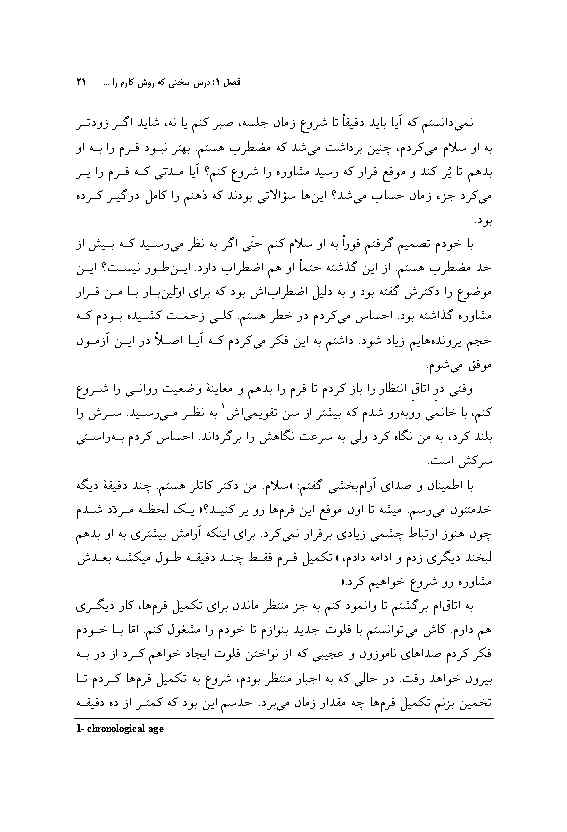 فصل ۱: درس سختی که روش کارم را ... ۲۱
نمی‌دانستم که آیا باید دقیقاً تا شروع زمان جلسه، صبر کنم یا نه، شاید اگر زودتر
به او سلام می‌کردم، چنین برداشت می‌شد که مضطرب هستم. بهتر نبود فرم را به او
بدهم تا پُر کند و موقع قرار که رسید مشاوره را شروع کنم؟ آیا مدتی که فرم را پر
می‌کرد جزء زمان حساب می‌شد؟ این‌ها سؤالاتی بودند که ذهنم را کاملاً درگیر کرده
بود.
با خودم تصمیم گرفتم فوراً به او سلام کنم حتّی اگر به نظر می‌رسید که بیش از
حد مضطرب هستم. از این گذشته حتماً او هم اضطراب دارد. این‌طور نیست؟ این
موضوع را دکترش گفته بود و به دلیل اضطراب‌اش بود که برای اولین‌بار با من قرار
مشاوره گذاشته بود. احساس می‌کردم در خطر هستم. کلی زحمت کشیده بودم که
حجم پرونده‌هایم زیاد شود. داشتم به این فکر می‌کردم که آیا اصلاً در این آزمون
موفق می‌شوم.
وقتی درِ اتاقِ انتظار را باز کردم تا فرم را بدهم و معاینهٔ وضعیت روانی را شروع
کنم، با خانمی روبه‌رو شدم که بیشتر از سن تقویمی‌اش۱ به نظر می‌رسید. سرش را
بلند کرد، به من نگاه کرد ولی به سرعت نگاهش را برگرداند. احساس کردم به‌راستی
سرکش است.
با اطمینان و صدای آرام‌بخشی گفتم: «سلام. من دکتر کاتلر هستم. چند دقیقهٔ دیگه
خدمتتون می‌رسم. میشه تا اون موقع این فرم‌ها رو پر کنید؟» یک لحظه مردّد شدم
چون هنوز ارتباط چشمی زیادی برقرار نمی‌کرد. برای اینکه آرامش بیشتری به او بدهم
لبخند دیگری زدم و ادامه دادم، «تکمیل فرم فقط چند دقیقه طول میکشه بعدش
مشاوره رو شروع خواهیم کرد.»
به اتاق‌ام برگشتم تا وانمود کنم به جز منتظر ماندن برای تکمیل فرم‌ها، کار دیگری
هم دارم. کاش می‌توانستم با قلوت جدید بنوازم تا خودم را مشغول کنم. اما با خودم
فکر کردم صداهای ناموزون و عجیبی که از نواختن قلوت ایجاد خواهم کرد از در به
بیرون خواهد رفت. در حالی که به اجبار منتظر بودم، شروع به تکمیل فرم‌ها کردم تا
تخمین بزنم تکمیل فرم‌ها چه مقدار زمان می‌برد. حدسم این بود که کمتر از ده دقیقه
1- chronological age